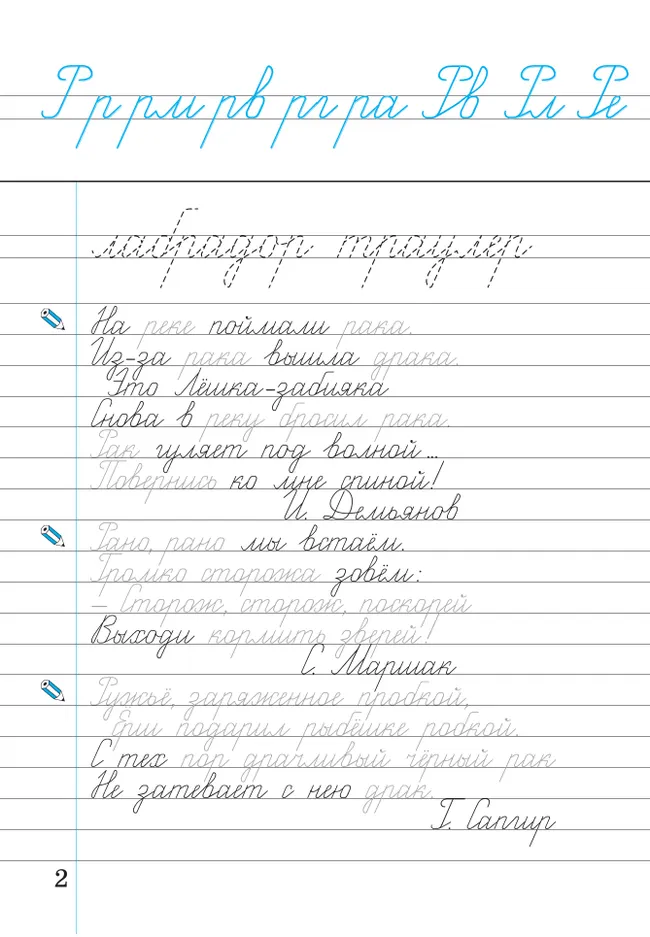 Рр рм рв рг ра Рв Рл Ре
лабрадор траулер
На реке поймали рака.
Из-за рака вышла драка.
Это Лёшка-забияка
Снова в реку бросил рака.
Рак гуляет под волной...
Повернись ко мне спиной!
И. Демьянов
Рано, рано мы встаём.
Громко сторожа зовём:
– Сторож, сторож, поскорей
Выходи кормить зверей!
С. Маршак
Ружьё, заряженное пробкой,
Ёрш подарил рыбёшке робкой.
С тех пор драчливый чёрный рак
Не затевает с нею драк.
Г. Сапгир
2